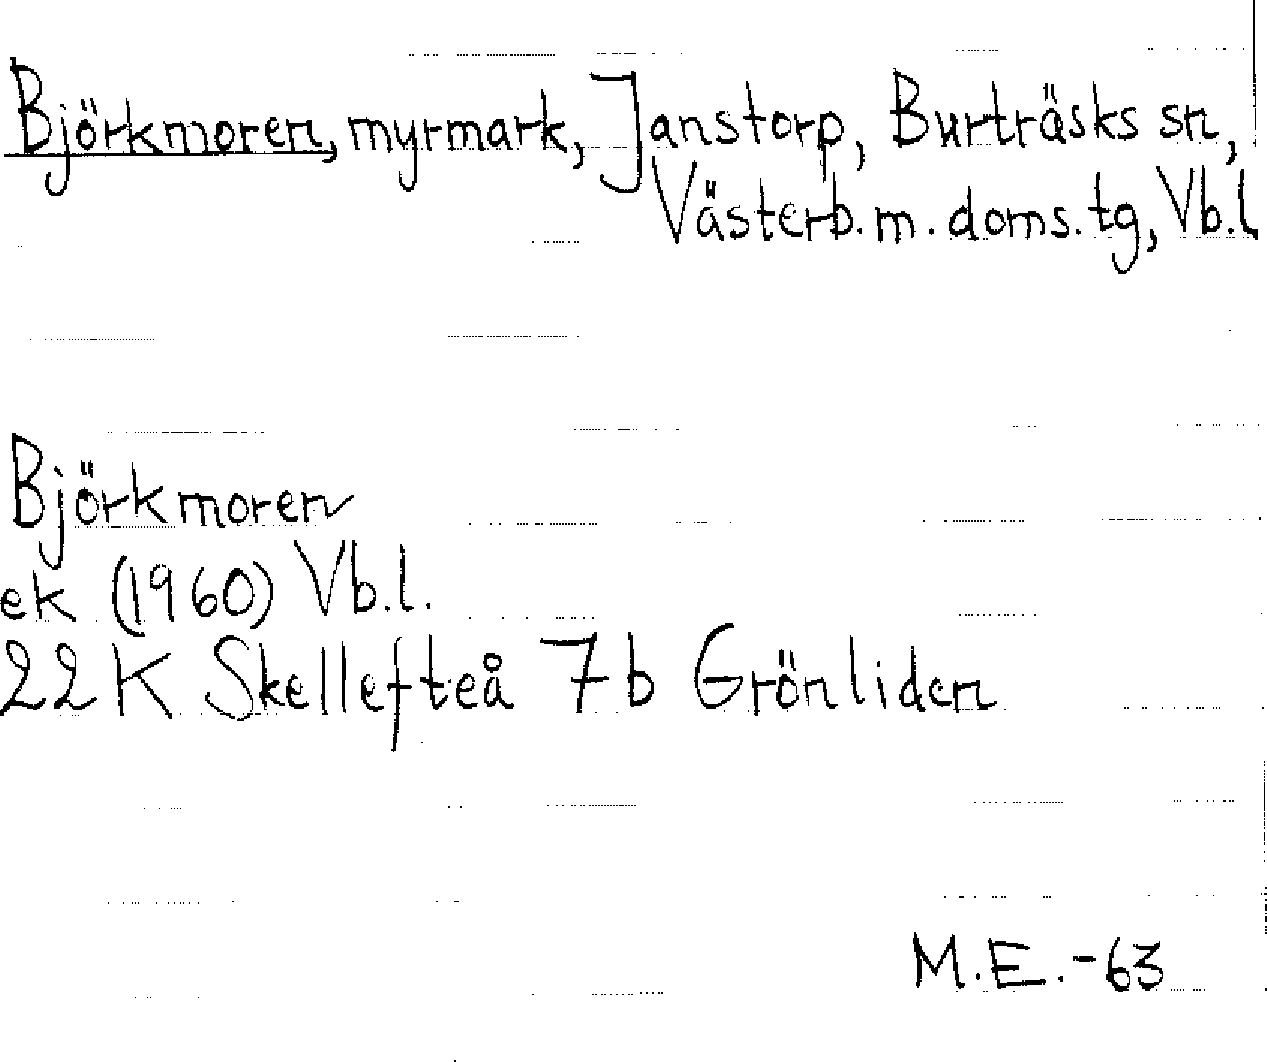 Björkmoren, myrmark, Janstorp, Burträsks sn,
Västerb. m. doms. tg, Vb.l
Björkmoren
ek (1960) Vb.l.
22K Skellefteå 7b Grönliden
M.E.-63